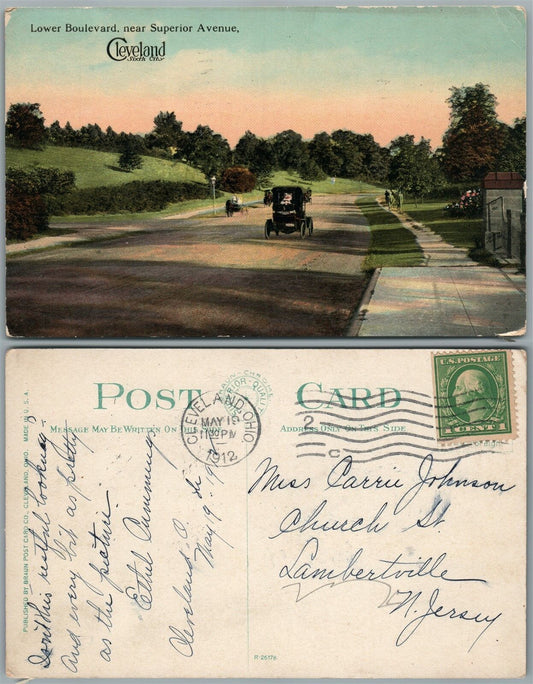 Lower Boulevard, near Superior Avenue,
Cleveland
Sixth City
POST CARD
MESSAGE MAY BE WRITTEN ON THIS SIDE
ADDRESS ONLY ON THIS SIDE
CLEVELAND, OHIO
MAY
11 30 PM
1912
2
C
U.S. POSTAGE
1 CENT 1
PUBLISHED BY BRAUN POST CARD CO., CLEVELAND, OHIO. MADE IN U.S.A.
Isn't this restful looking?
And every bit as pretty
as the picture.
Ethel Cummings
Cleveland O.
May 9.
Miss Carrie Johnson
Church St.
Lambertville
N. Jersey
R-26176